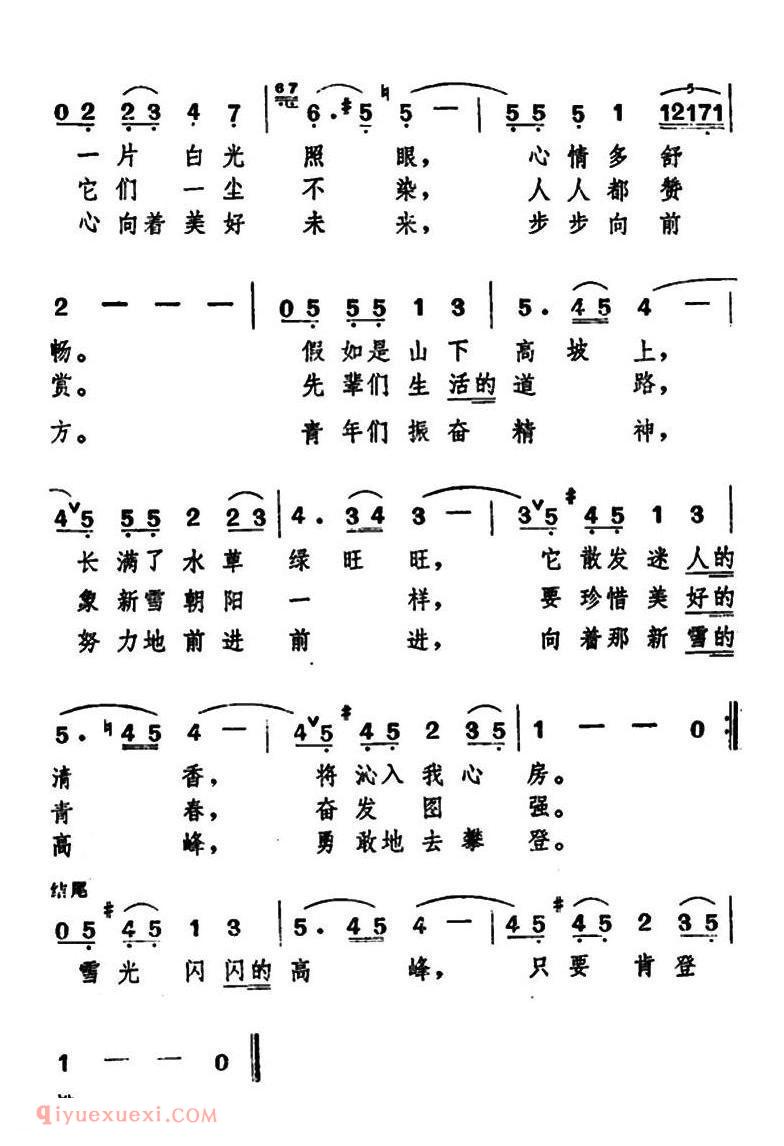 0 2 2 3 4 7 | 67 6. #5 ♮5 — | 5 5 5 1 12171 |
一片白光照眼，心情多舒
它们一尘不染，人人都赞
心向着美好未来，步步向前
2 — — — | 0 5 5 5 1 3 | 5. 4 5 4 — |
畅。假如是山下高坡上，
赏。先辈们生活的道路，
方。青年们振奋精神，
4 5 5 5 2 2 3 | 4. 3 4 3 — | 3 5 #4 5 1 3 |
长满了水草绿旺旺，它散发迷人的
象新雪朝阳一样，要珍惜美好的
努力地前进前进，向着那新雪的
5. ♮4 5 4 — | 4 5 #4 5 2 3 5 | 1 — — 0 :‖
清香，将沁入我心房。
青春，奋发图强。
高峰，勇敢地去攀登。
结尾
0 5 #4 5 1 3 | 5. 4 5 4 — | 4 5 #4 5 2 3 5 |
雪光闪闪的高峰，只要肯登
1 — — 0 ‖
qiyuexuexi.com